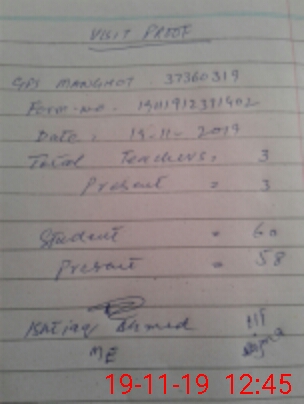 VISIT PROOF
GPS MANGHOT. 37360319
Form-no.
Date: 19-11-2019
Total Teachers, 3
Present = 3
Student = 60
Present = 58
Ishtiaq Ahmed
ME
19-11-19 12:45